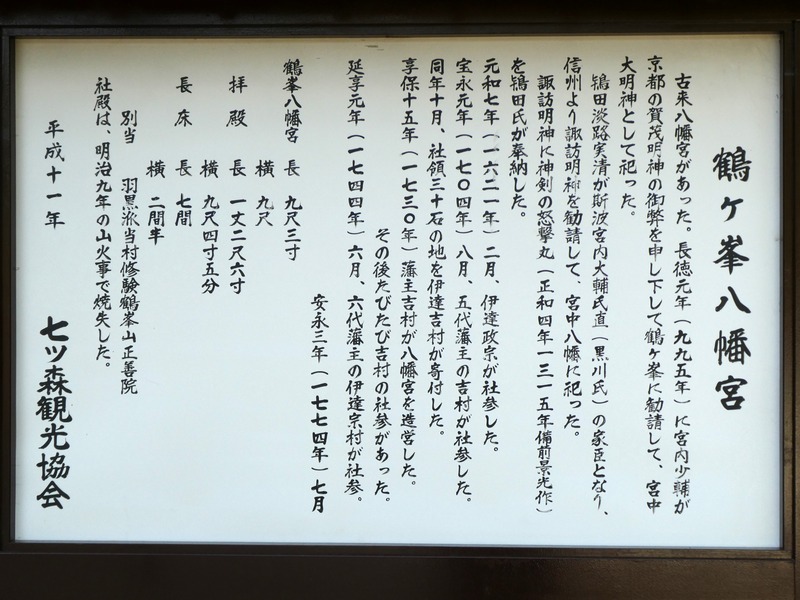 鶴ヶ峯八幡宮
古来八幡宮があった。長徳元年(九九五年)に宮内少輔が
京都の賀茂明神の御弊を申し下して鶴ヶ峯に勧請して、宮中
大明神として祀った。
鴇田淡路実清が斯波宮内大輔氏直(黒川氏)の家臣となり、
信州より諏訪明神を勧請して、宮中八幡に祀った。
諏訪明神に神剣の怒撃丸(正和四年一三一五年備前景光作)
を鴇田氏が奉納した。
元和七年(一六二一年)二月、伊達政宗が社参した。
宝永元年(一七〇四年)八月、五代藩主の吉村が社参した。
同年十月、社領三十石の地を伊達吉村が寄付した。
享保十五年(一七三〇年)藩主吉村が八幡宮を造営した。
その後たびたび吉村の社参があった。
延享元年(一七四四年)六月、六代藩主の伊達宗村が社参。
安永三年(一七七四年)七月
鶴峯八幡宮 長 九尺三寸
横 九尺
拝殿 長 一丈二尺六寸
横 九尺四寸五分
長床 長 七間
横 二間半
別当 羽黒派当村修験鶴峯山正善院
社殿は、明治九年の山火事で焼失した。
平成十一年
七ツ森観光協会